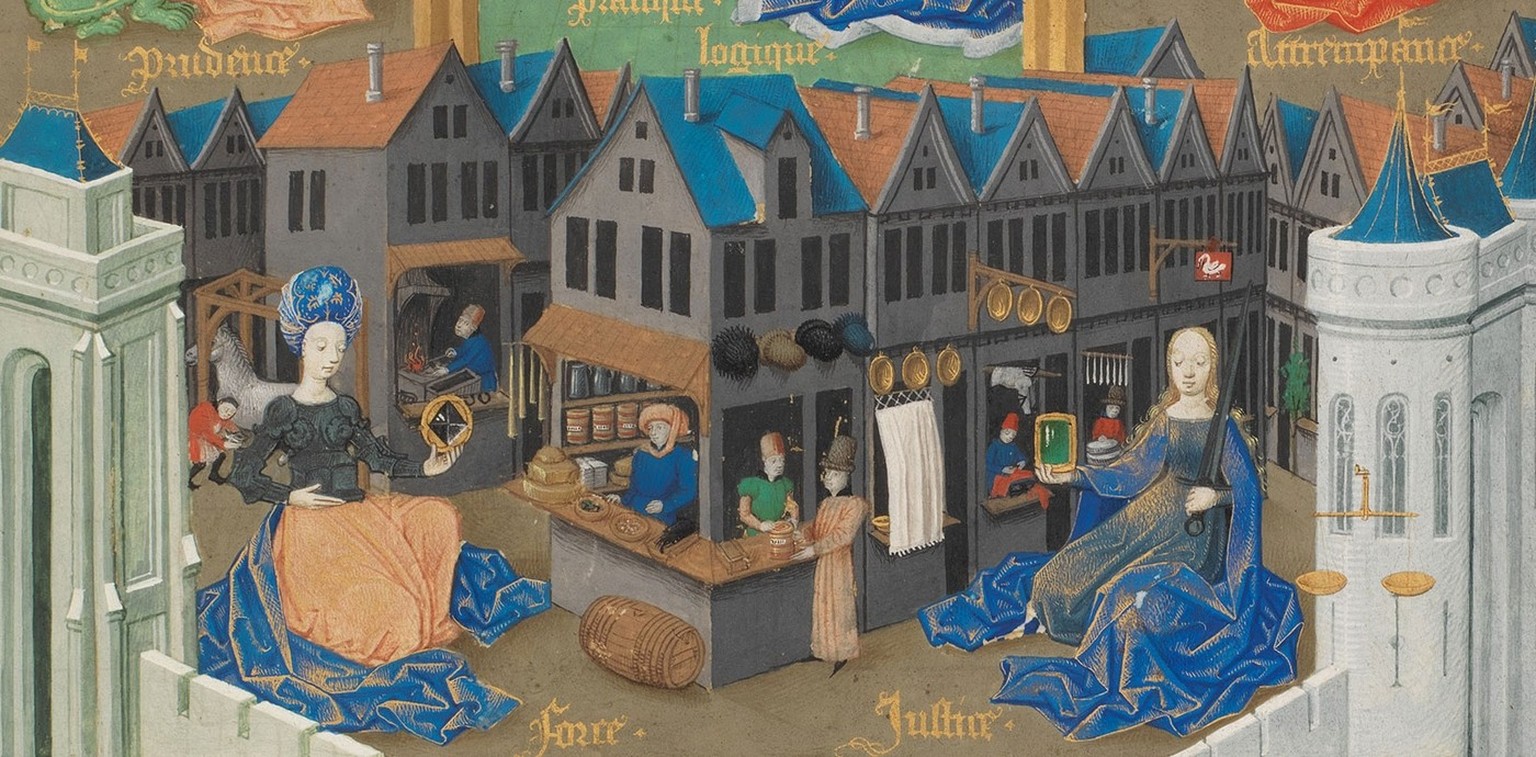 pratique ·
Prudence ·
logique ·
Attrempance ·
Force ·
Justice ·